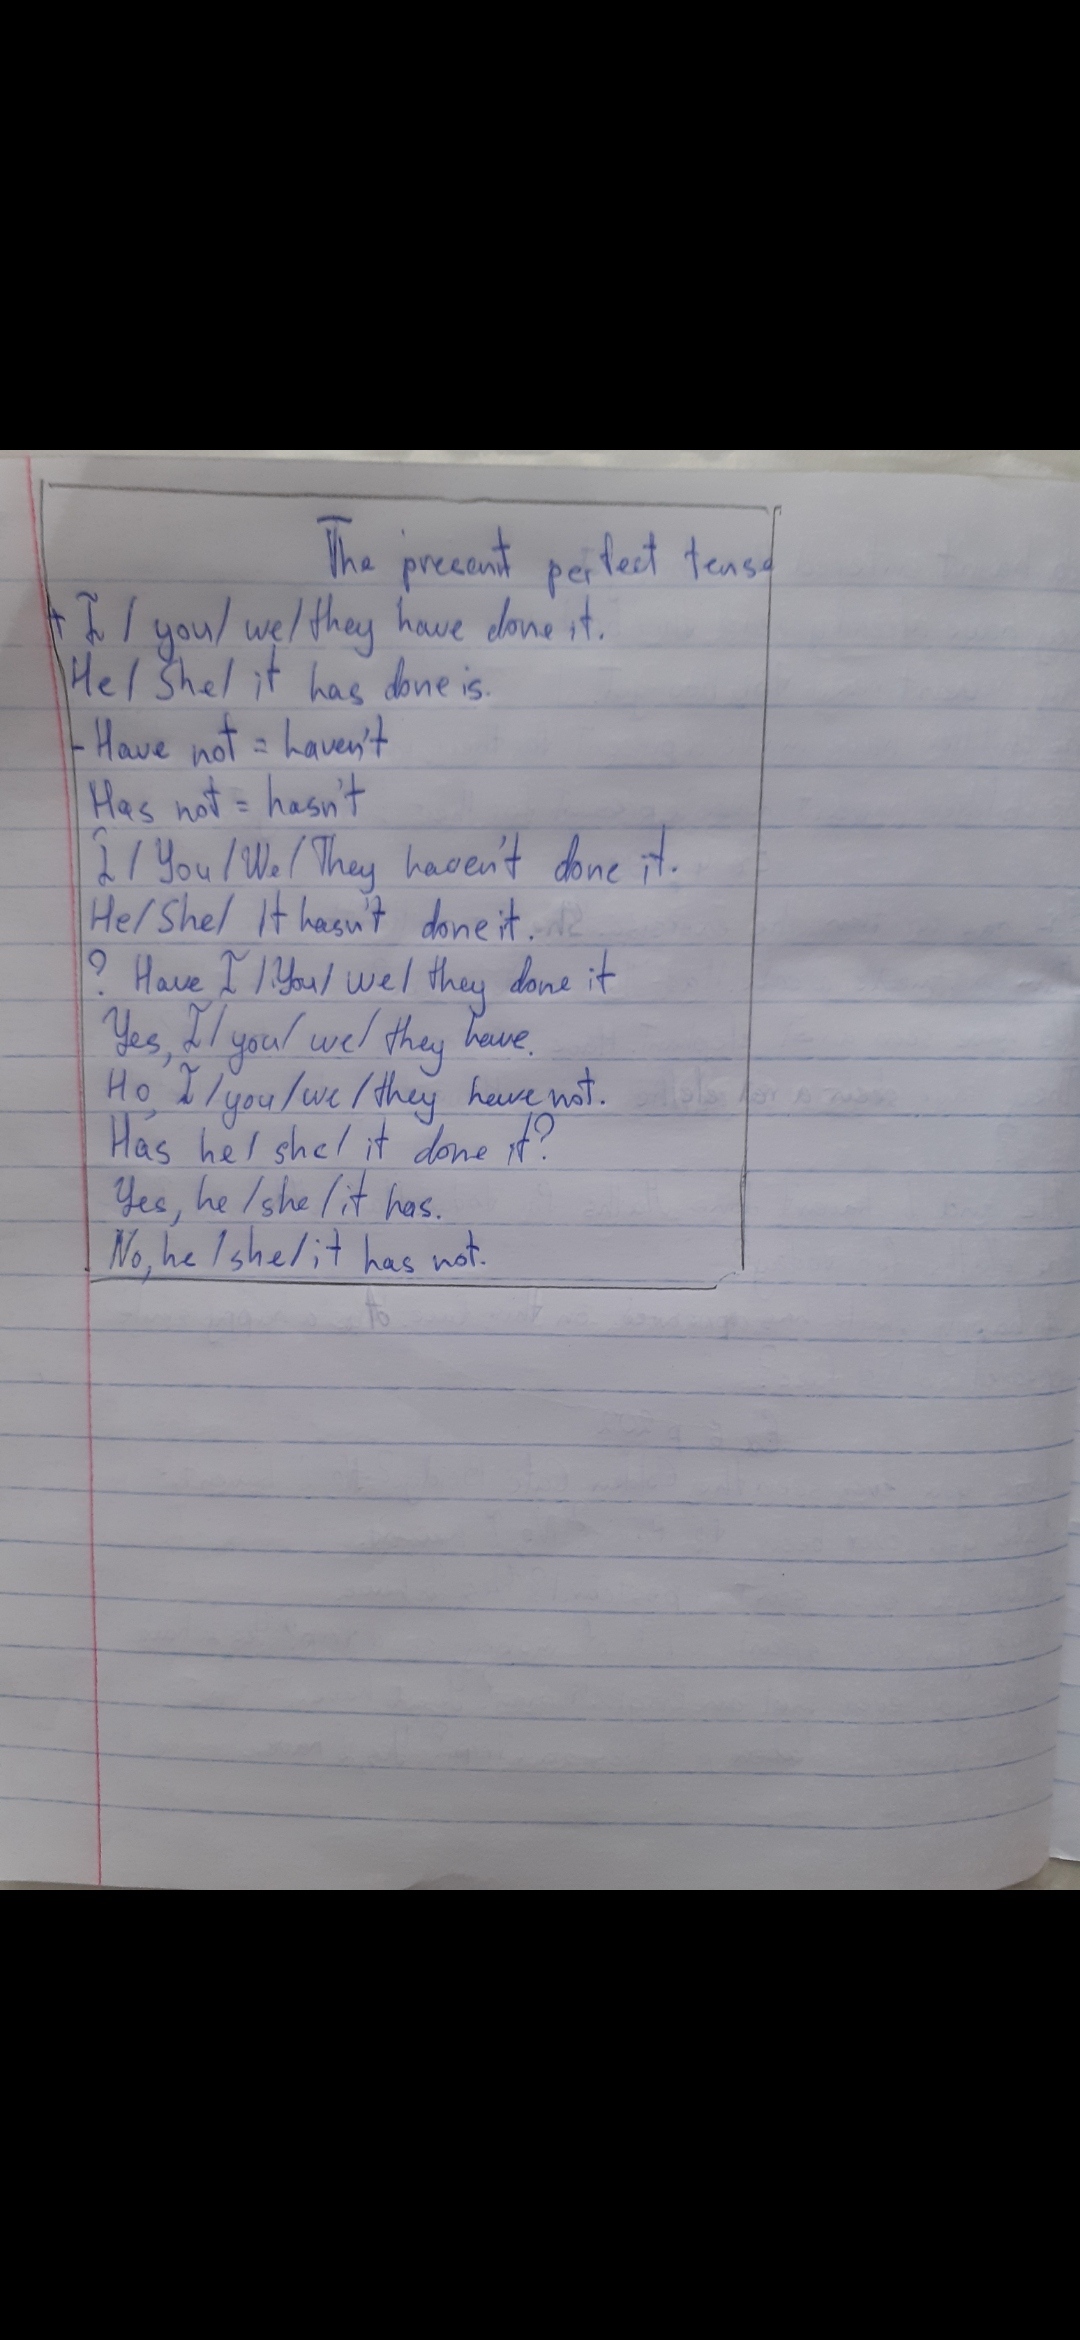 The present perfect tense
+ I / you / we / they have done it.
He / She / it has done is.
- Have not = haven't
Has not = hasn't
I / You / We / They haven't done it.
He / She / It hasn't done it.
? Have I / You / we / they done it
Yes, I / you / we / they have.
Ho, I / you / we / they have not.
Has he / she / it done it?
Yes, he / she / it has.
No, he / she / it has not.